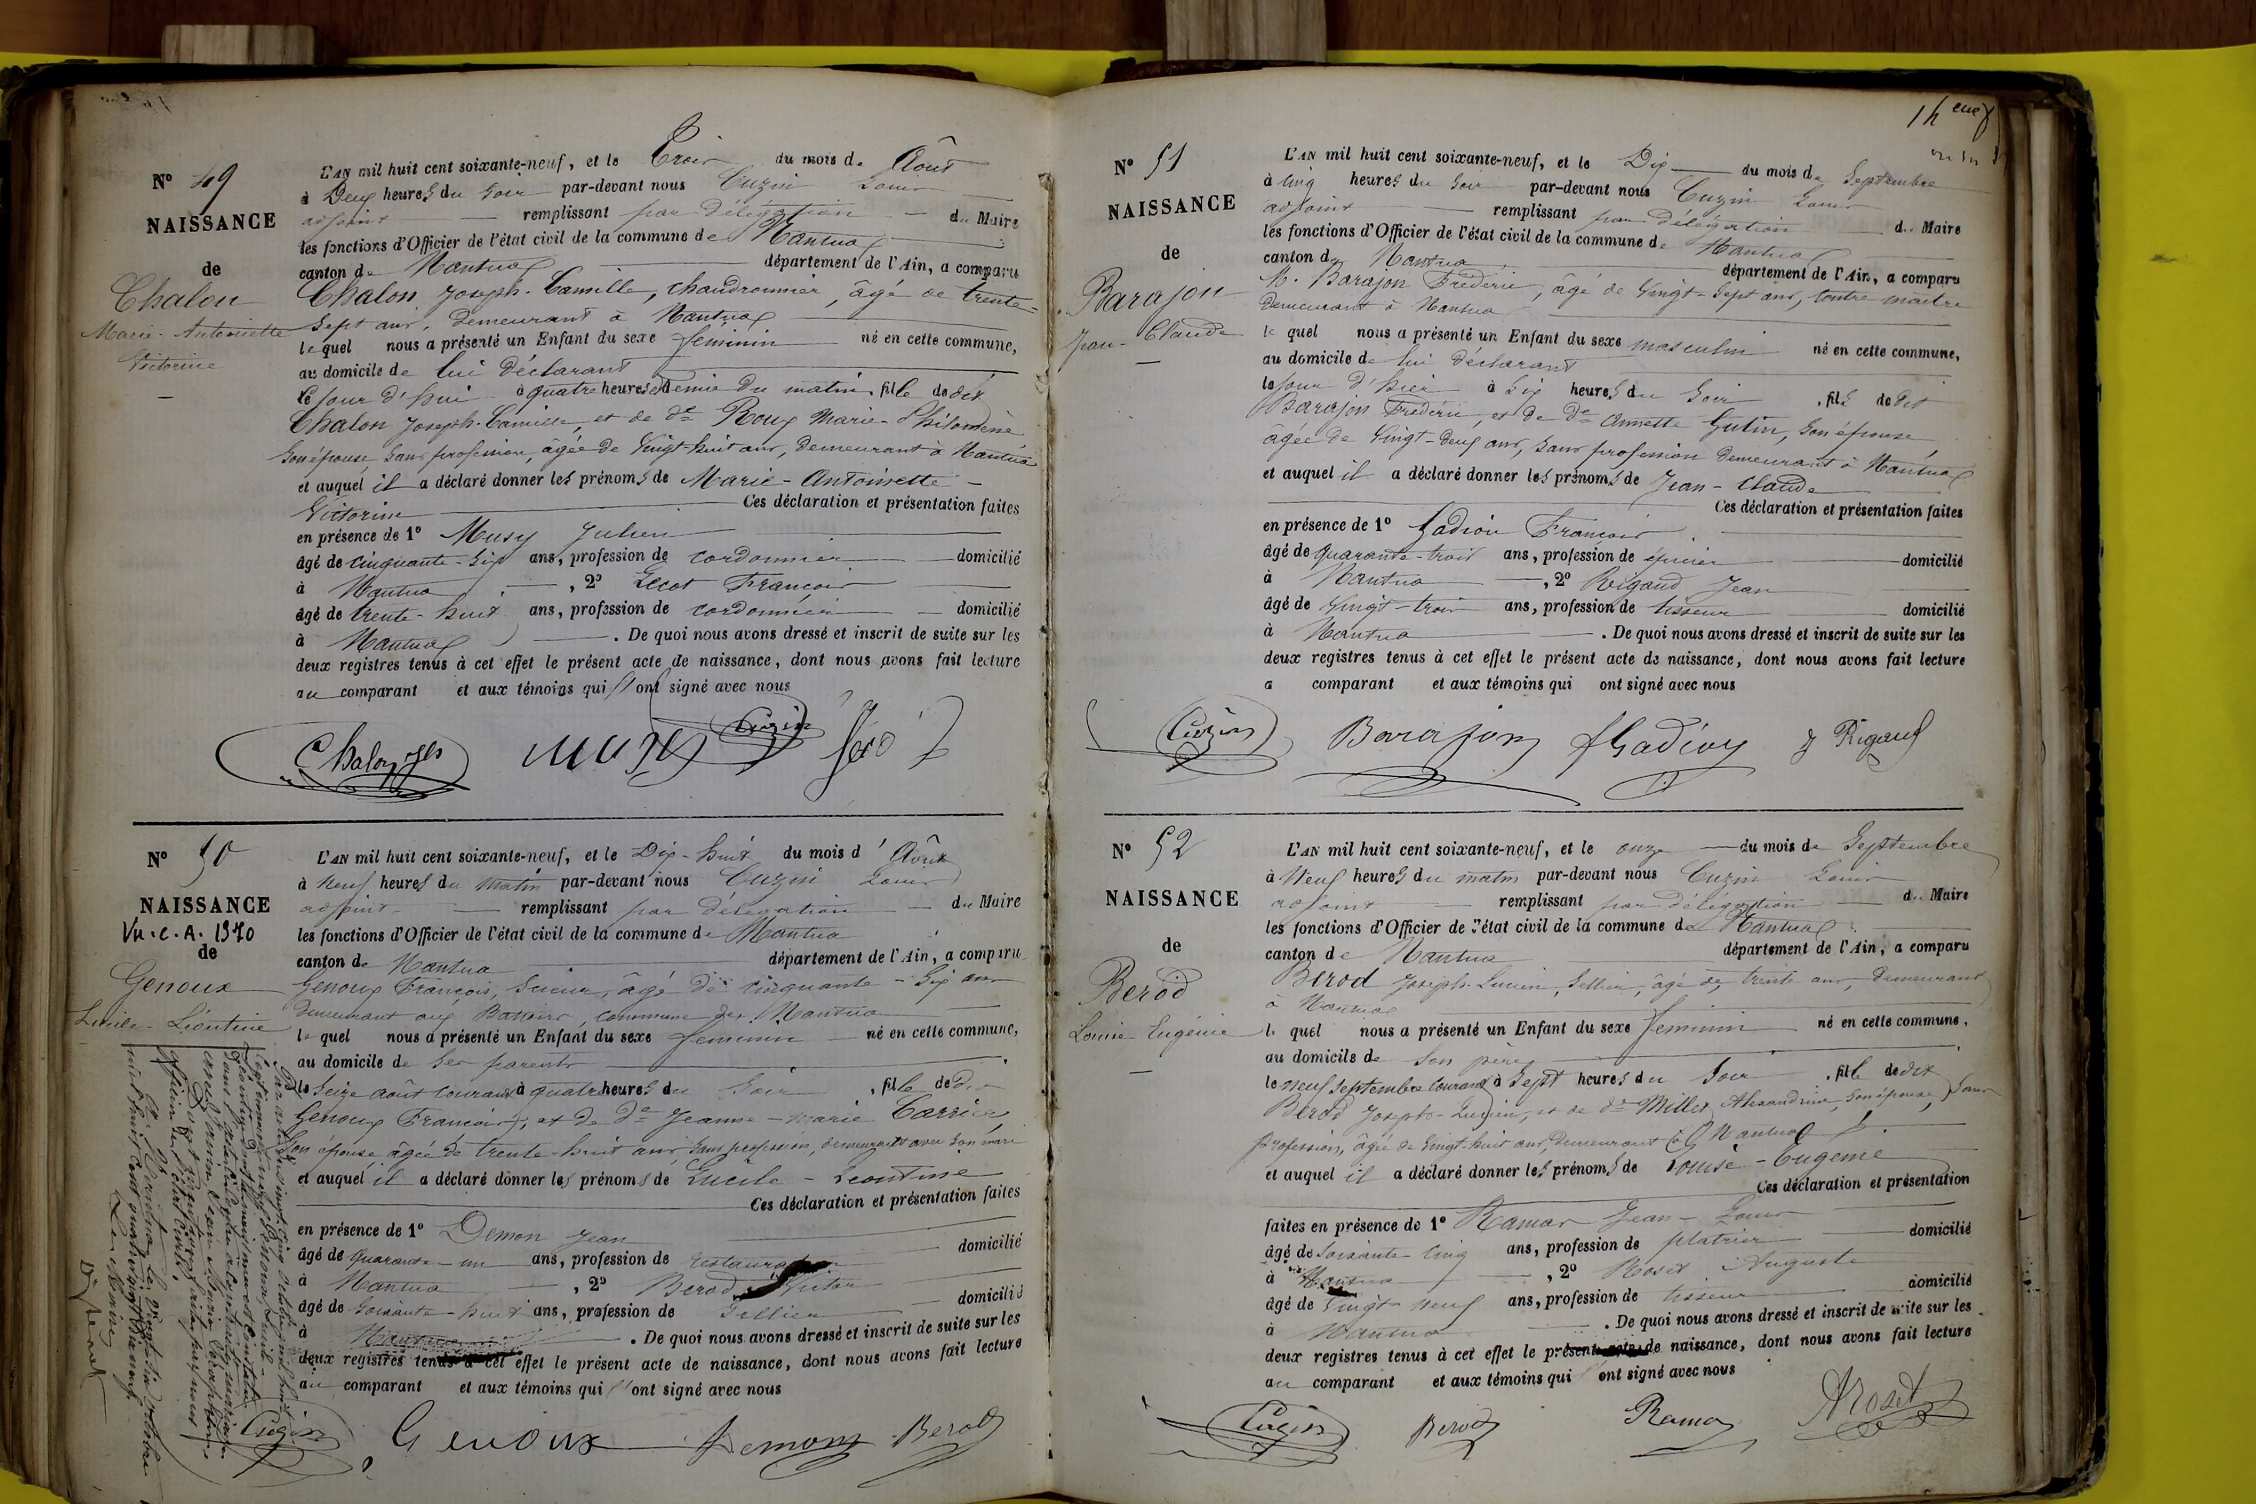 N° 49
NAISSANCE
de
Chalon
Marie-Antoinette
Victorine
L'AN mil huit cent soixante-neuf, et le Trois du mois d' Août
à Deux heures du soir par-devant nous Cuzin Louis
adjoint remplissant par délégation du Maire
les fonctions d'Officier de l'état civil de la commune de Nantua
canton de Nantua département de l'Ain, a comparu
Chalon Joseph-Camille, chaudronnier, âgé de trente-
sept ans, demeurant à Nantua
lequel nous a présenté un Enfant du sexe féminin né en cette commune,
au domicile de lui déclarant
le jour d'hui à quatre heures et demie du matin, fille de dit
Chalon Joseph-Camille, et de de Roux Marie-Philomène
son épouse, sans profession, âgée de vingt-huit ans, demeurant à Nantua
et auquel il a déclaré donner les prénoms de Marie-Antoinette-
Victorine Ces déclaration et présentation faites
en présence de 1° Musy Julien
âgé de cinquante-six ans, profession de cordonnier domicilié
à Nantua, 2° Lecot François
âgé de trente-huit ans, profession de cordonnier domicilié
à Nantua. De quoi nous avons dressé et inscrit de suite sur les
deux registres tenus à cet effet le présent acte de naissance, dont nous avons fait lecture
au comparant et aux témoins qui ont signé avec nous
Chalon Musy Cuzin
N° 50
NAISSANCE
Vu.c.A. 1970
de
Genoux
Lucile-Léontine
L'AN mil huit cent soixante-neuf, et le Dix-huit du mois d' Août
à Neuf heures du matin par-devant nous Cuzin Louis
adjoint remplissant par délégation du Maire
les fonctions d'Officier de l'état civil de la commune de Nantua
canton de Nantua département de l'Ain, a comparu
Genoux François, âgé de cinquante-six ans
demeurant aux Battoirs, commune de Nantua
lequel nous a présenté un Enfant du sexe féminin né en cette commune,
au domicile de ses parents
le seize août courant à quatre heures du soir, fille de dit
Genoux François, et de de Jeanne-Marie
son épouse âgée de trente-huit ans, sans profession, demeurant avec son mari
et auquel il a déclaré donner les prénoms de Lucile-Léontine
Ces déclaration et présentation faites
en présence de 1° Demon Jean
âgé de quarante-un ans, profession de domicilié
à Nantua, 2° Berod
âgé de soixante-huit ans, profession de sellier domicilié
à Nantua. De quoi nous avons dressé et inscrit de suite sur les
deux registres tenus à cet effet le présent acte de naissance, dont nous avons fait lecture
au comparant et aux témoins qui l'ont signé avec nous
Cuzin Genoux Demon Berod
N° 51
NAISSANCE
de
Barajon
Jean-Claude
L'AN mil huit cent soixante-neuf, et le Dix du mois de Septembre
à cinq heures du soir par-devant nous Cuzin Louis
adjoint remplissant par délégation du Maire
les fonctions d'Officier de l'état civil de la commune de Nantua
canton de Nantua département de l'Ain, a comparu
M. Barajon Frédéric, âgé de vingt-sept ans, contre maître
demeurant à Nantua
lequel nous a présenté un Enfant du sexe masculin né en cette commune,
au domicile de lui déclarant
le jour d'hier à six heures du soir, fils de dit
Barajon Frédéric, et de de Annette Gutin, son épouse
âgée de vingt-deux ans, sans profession demeurant à Nantua
et auquel il a déclaré donner les prénoms de Jean-Claude
Ces déclaration et présentation faites
en présence de 1° Gadiou François
âgé de quarante-trois ans, profession de épicier domicilié
à Nantua, 2° Rigaud Jean
âgé de vingt-trois ans, profession de tisseur domicilié
à Nantua. De quoi nous avons dressé et inscrit de suite sur les
deux registres tenus à cet effet le présent acte de naissance, dont nous avons fait lecture
a comparant et aux témoins qui ont signé avec nous
Cuzin Barajon J Rigaud
N° 52
NAISSANCE
de
Berod
Louise-Eugénie
L'AN mil huit cent soixante-neuf, et le onze du mois de Septembre
à Neuf heures du matin par-devant nous Cuzin Louis
adjoint remplissant par délégation du Maire
les fonctions d'Officier de l'état civil de la commune de Nantua
canton de Nantua département de l'Ain, a comparu
Berod Joseph-Lucien, sellier, âgé de trente ans, demeurant
à Nantua
lequel nous a présenté un Enfant du sexe féminin né en cette commune,
au domicile de son père
le neuf septembre courant à sept heures du soir, fille de dit
Berod Joseph-Lucien, et de de Millet Alexandrine, son épouse, sans
profession, âgée de vingt-huit ans, demeurant à Nantua
et auquel il a déclaré donner les prénoms de Louise-Eugénie
Ces déclaration et présentation
faites en présence de 1° Ramas Jean-Louis domicilié
âgé de soixante-cinq ans, profession de platrier
à Nantua, 2° Roset Auguste
âgé de vingt-neuf ans, profession de tisseur domicilié
à Nantua. De quoi nous avons dressé et inscrit de suite sur les
deux registres tenus à cet effet le présent acte de naissance, dont nous avons fait lecture
au comparant et aux témoins qui ont signé avec nous
Cuzin Berod Rama A Roset